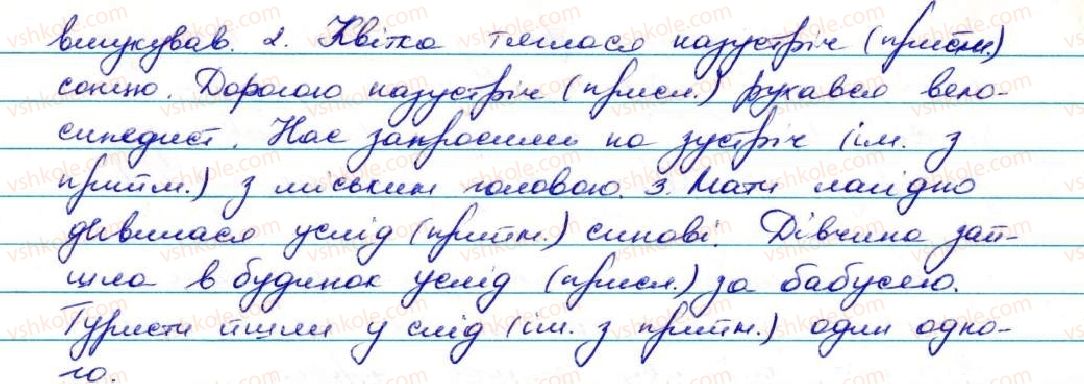 вишукував. 2. Квітка тяглася назустріч (прийм.)
сонцю. Дорогою назустріч (присл.) рухався вело-
сипедист. Нас запросили на зустріч (ім. з
прийм.) з міським головою. 3. Мати лагідно
дивилася услід (прийм.) синові. Дівчина зай-
шла в будинок услід (присл.) за бабусею.
Туристи йшли у слід (ім. з прийм.) один одно-
го.